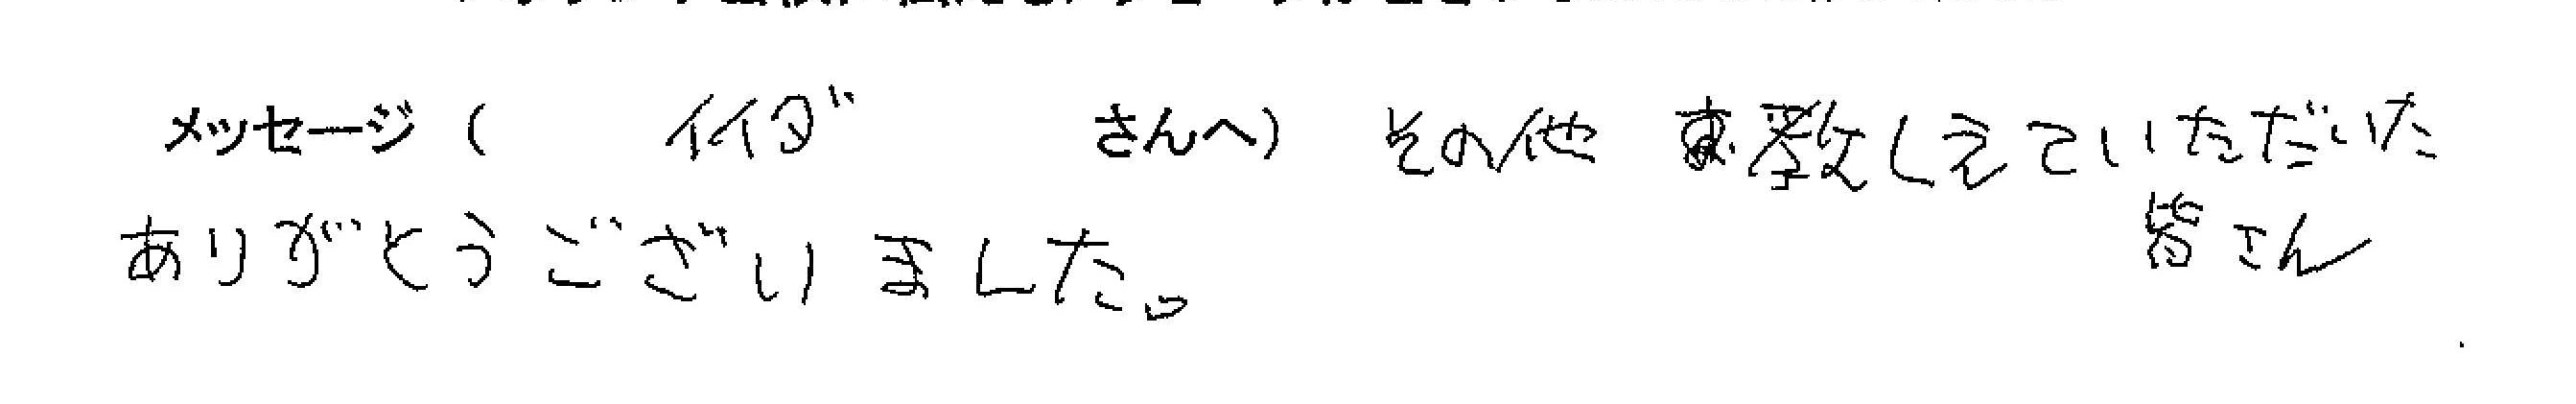 メッセージ( イイダ さんへ) その他 教しえていただいた
皆さん
ありがとうございました。